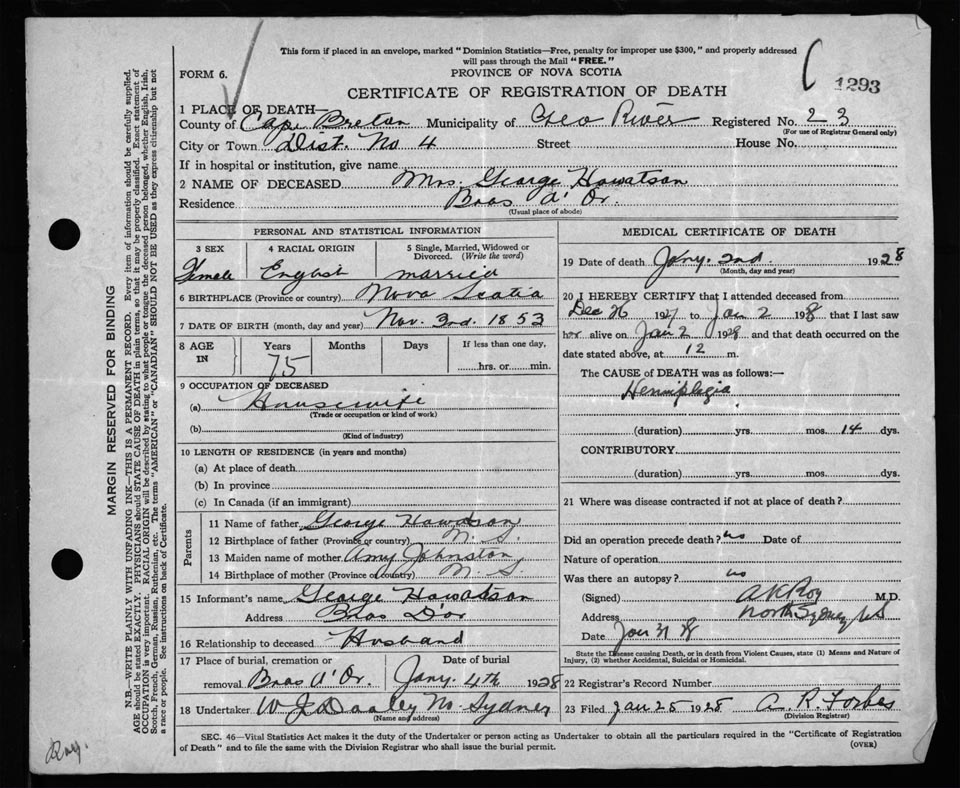 This form if placed in an envelope, marked "Dominion Statistics—Free, penalty for improper use $300," and properly addressed
will pass through the Mail "FREE."
FORM 6.
PROVINCE OF NOVA SCOTIA
1293
CERTIFICATE OF REGISTRATION OF DEATH
1 PLACE OF DEATH—
County of Cape Breton Municipality of Geo River Registered No. 23
(For use of Registrar General only)
City or Town Dist. No 4 Street House No.
If in hospital or institution, give name
2 NAME OF DECEASED Mrs. George Howatson
Residence Bras d'Or.
(Usual place of abode)
PERSONAL AND STATISTICAL INFORMATION
3 SEX 4 RACIAL ORIGIN 5 Single, Married, Widowed or
Divorced. (Write the word)
Female English married
6 BIRTHPLACE (Province or country) Nova Scotia
7 DATE OF BIRTH (month, day and year) Nov. 3rd. 1853
8 AGE IN Years Months Days If less than one day,
75 hrs. or min.
9 OCCUPATION OF DECEASED
(a) Housewife
(Trade or occupation or kind of work)
(b)
(Kind of industry)
10 LENGTH OF RESIDENCE (in years and months)
(a) At place of death
(b) In province
(c) In Canada (if an immigrant)
Parents
11 Name of father George
12 Birthplace of father (Province or country) N. S.
13 Maiden name of mother Amy Johnston
14 Birthplace of mother (Province or country) N. S.
15 Informant's name George Howatson
Address Bras D'or
16 Relationship to deceased Husband
17 Place of burial, cremation or Date of burial
removal Bras d'Or. Jany. 4th 1928
18 Undertaker W J Dooley No. Sydney
(Name and address)
MEDICAL CERTIFICATE OF DEATH
19 Date of death Jany. 2nd. 1928
(Month, day and year)
20 I HEREBY CERTIFY that I attended deceased from
Dec 26 1927 to Jan 2 1928 that I last saw
her alive on Jan 2 1928 and that death occurred on the
date stated above, at 12 m.
The CAUSE of DEATH was as follows:—
Hemiplegia
(duration) yrs. mos. 14 dys.
CONTRIBUTORY
(duration) yrs. mos. dys.
21 Where was disease contracted if not at place of death?
Did an operation precede death? no Date of
Nature of operation
Was there an autopsy? no
(Signed) A K Roy M.D.
Address North Sydney NS
Date Jan 8
State the Disease causing Death, or in death from Violent Causes, state (1) Means and Nature of
Injury, (2) whether Accidental, Suicidal or Homicidal.
22 Registrar's Record Number
23 Filed Jan 25 1928 A. R. Forbes
(Division Registrar)
SEC. 46—Vital Statistics Act makes it the duty of the Undertaker or person acting as Undertaker to obtain all the particulars required in the "Certificate of Registration
of Death" and to file the same with the Division Registrar who shall issue the burial permit. (OVER)
MARGIN RESERVED FOR BINDING
N.B.—WRITE PLAINLY WITH UNFADING INK—THIS IS A PERMANENT RECORD. Every item of information should be carefully supplied.
AGE should be stated EXACTLY. PHYSICIANS should STATE CAUSE OF DEATH in plain terms, so that it may be properly classified. Exact statement of
OCCUPATION is very important. RACIAL ORIGIN will be described by stating to what people or tongue the deceased person belonged, whether English, Irish,
Scotch, French, German, Russian, Ruthenian, etc. The terms "AMERICAN" or "CANADIAN" SHOULD NOT BE USED as they express citizenship but not
a race or people. See instructions on back of Certificate.